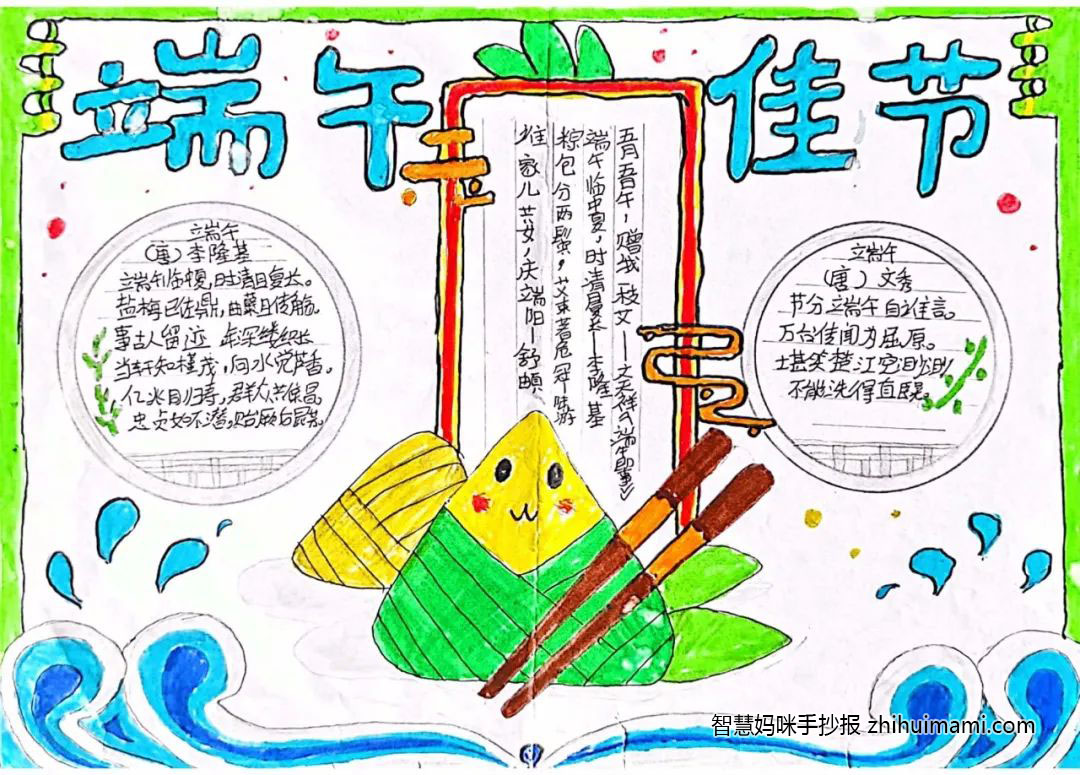 端午佳节
五月五午，赠我一枝艾——文天祥《端午即事》
端午临中夏，时清日复长——李隆基
粽包分两髻，艾束著危冠 陆游
谁家儿共女，庆端阳——舒頔
端午
（唐）李隆基
端午临中夏，时清日复长。
盐梅已佐鼎，曲糵且传觞。
事古人留迹 年深缕积长
当轩知槿茂，向水觉芦香。
亿兆同归寿，群公共保昌
忠贞如不替，贻厥后昆芳
端午
（唐）文秀
节分端午自谁言。
万古传闻为屈原。
堪笑楚江空渺渺
不能洗得直臣冤。
智慧妈咪手抄报 zhihuimami.com